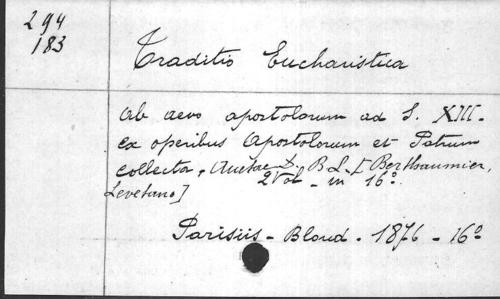 294
183
Traditio Eucharistica
ab aevo apostolorum ad S. XIII.
ex operibus Apostolorum et Patrum
collecta, Auctore D. B. L. [Berthaumier,
Levetano]
2 Vol. in 16º.
Parisiis - Bloud. 1876 - 16º